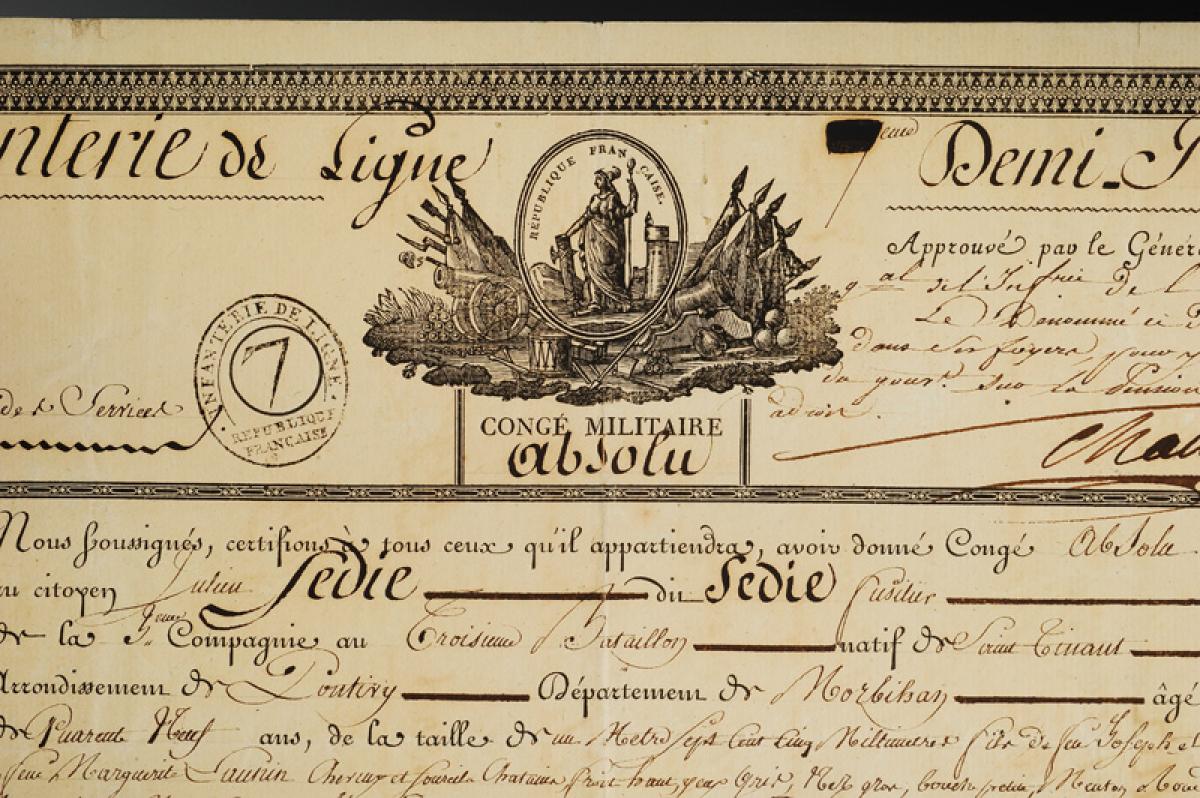 nterie de Ligne
eme Demi-
REPUBLIQUE FRANCAISE.
Approuvé par le Génér
INFANTERIE DE LIGNE.
7
REPUBLIQUE
FRANÇAISE
gal de l'Inf.rie De l
Le Dénommé ci
dans ses foyers, pour y
du gouv.t sur la Pension
des Services
CONGÉ MILITAIRE
absolu
Nous soussignés, certifions à tous ceux qu'il appartiendra, avoir donné Congé Absolu
au citoyen Julien Sedie dit Sedie fusilier
de la Compagnie au Troisieme Bataillon natif de Saint
Arrondissement de Pontivy Département de Morbihan âgé
de Quarente Neuf ans, de la taille de un Metre Sept Cent Cinq Millimetres fils de feu Joseph et
feue Marguerite Cheveux et Sourcils Chatains front haut, yeux Gris, Nez gros, bouche petite, Menton